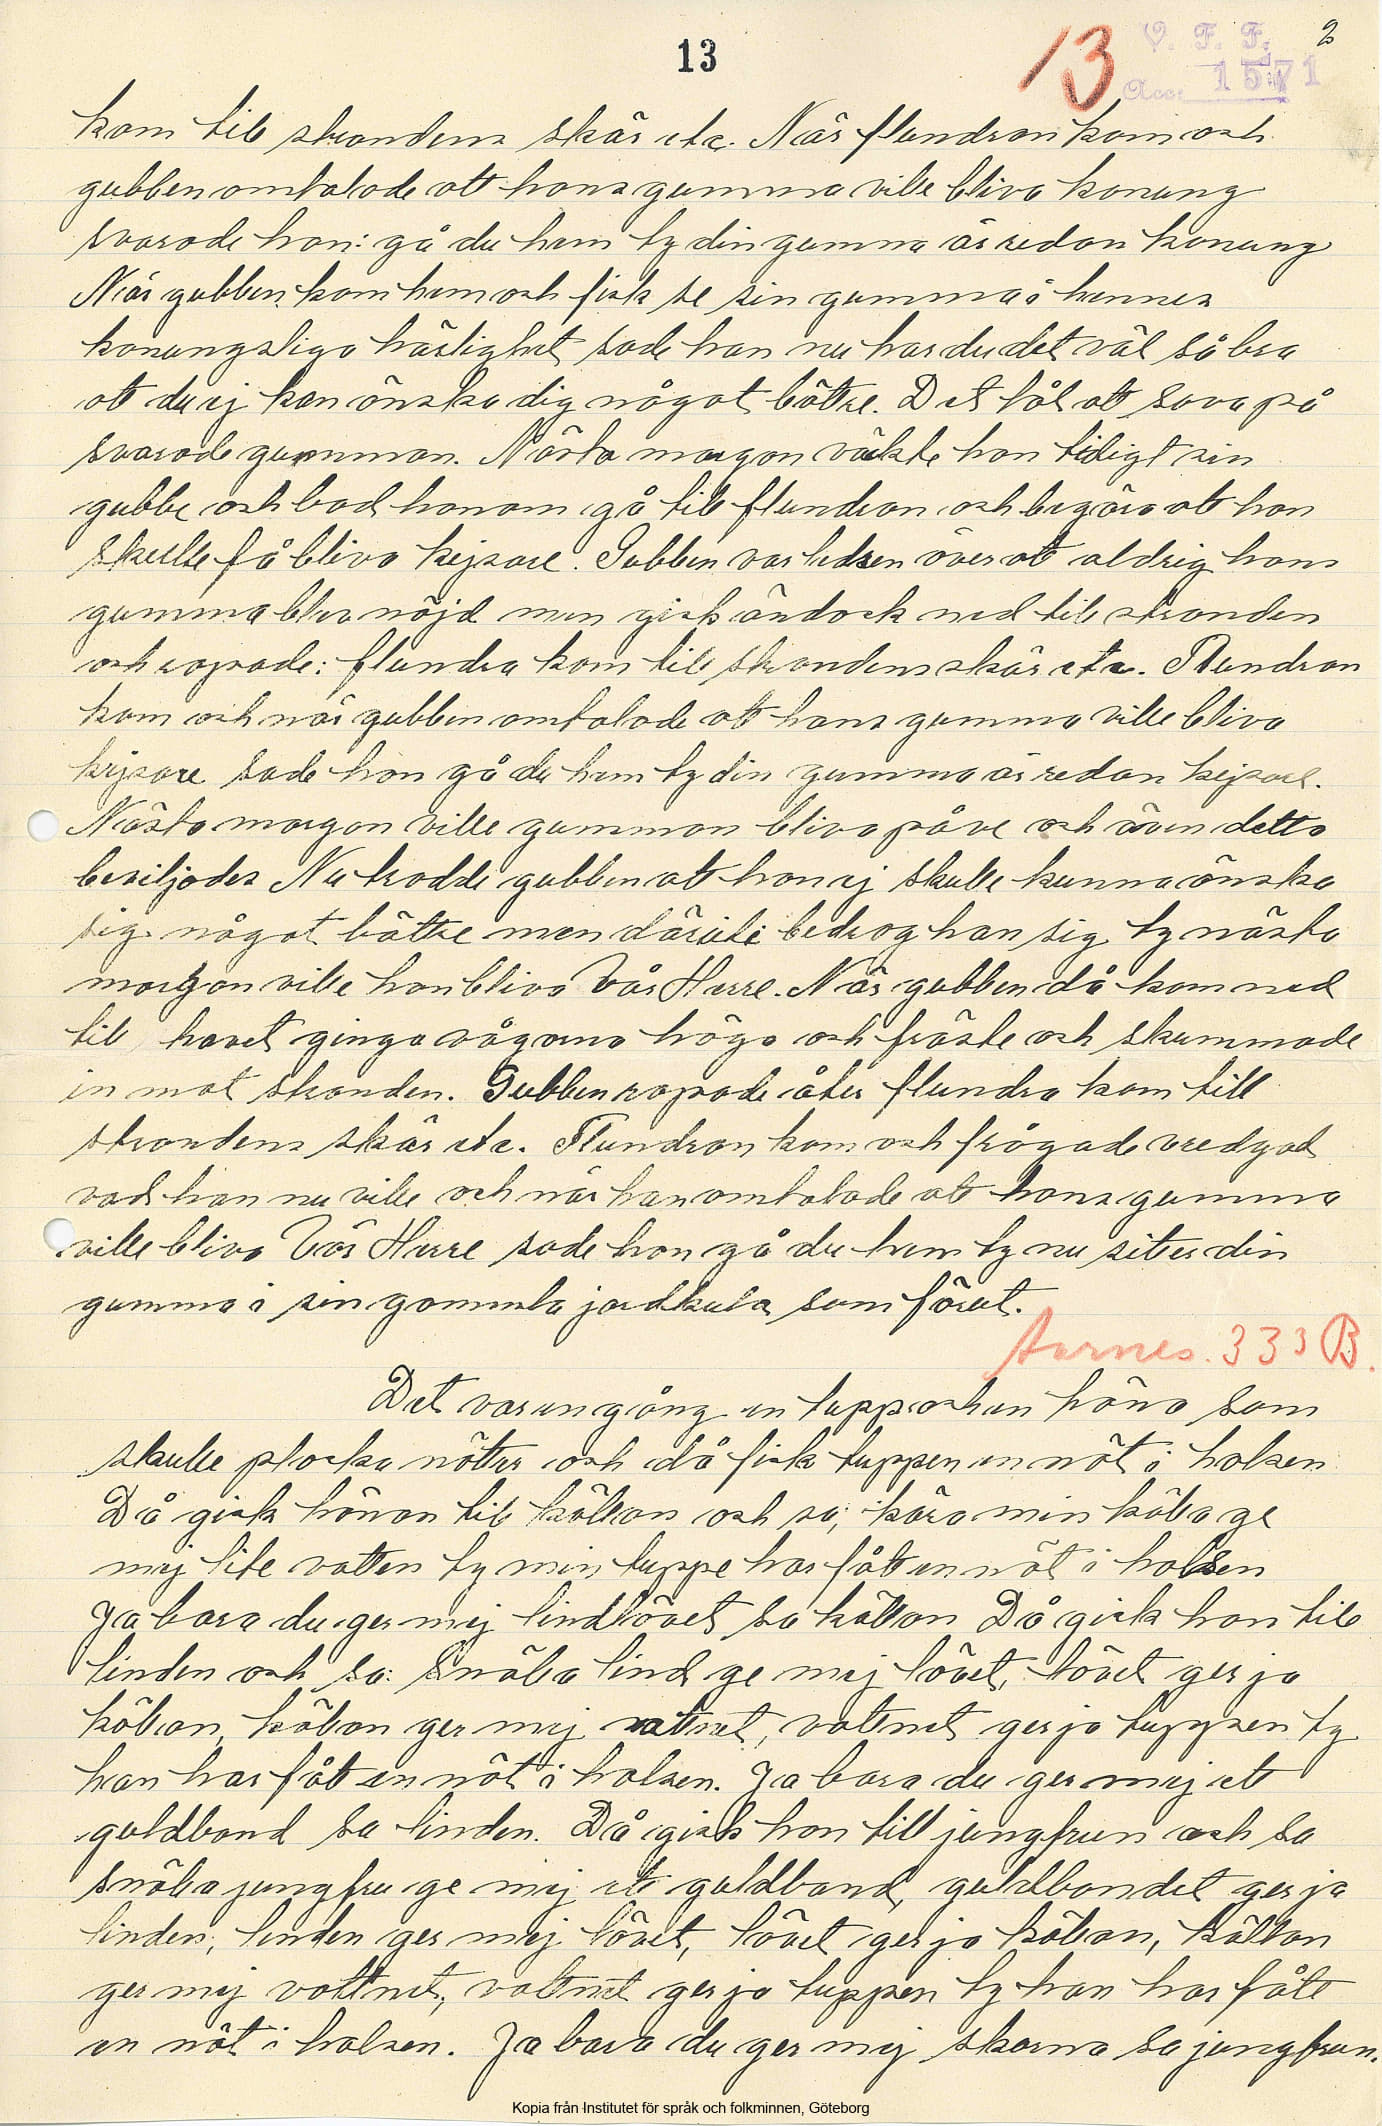 13
13
V. F. F. 2
Acc. 1571
kom till strandens skär etc. När flundran kom och
gubben omtalade att hans gumma ville bliva konung
svarade hon: gå du hem ty din gumma är redan konung
När gubben kom hem och fick se sin gumma i hennes
konungsliga härlighet sade han nu har du det väl så bra
att du ej kan önska dig något bättre. Det tål att sova på
svarade gumman. Nästa morgon väckte hon tidigt sin
gubbe och bad honom gå till flundran och begära att hon
skulle få bliva kejsare. Gubben var ledsen över att aldrig hans
gumma blev nöjd men gick ändock ned till stranden
och ropade: flundra kom till strandens skär etc. Flundran
kom och när gubben omtalade att hans gumma ville bliva
kejsare sade hon gå du hem ty din gumma är redan kejsare.
Nästa morgon ville gumman bliva påve och även detta
beviljades Nu trodde gubben att hon ej skulle kunna önska
sig något bättre men däruti bedrog han sig ty nästa
morgon ville hon bliva Vår Herre. När gubben då kom ned
till havet gingo vågorna höga och fräste och skummade
in mot stranden. Gubben ropade åter flundra kom till
strandens skär etc. Flundran kom och frågade vredgad
vad han nu ville och när han omtalade att hans gumma
ville bliva Vår Herre sade hon gå du hem ty nu sitter din
gumma i sin gammla jordkula som förut.
Aarnes. 333 B.
Det var en gång en tupp och en höna som
skulle plocka nötter och då fick tuppen en nöt i halsen
Då gick hönan till källan och sa; kära min källa ge
mej lite vatten ty min tuppe har fått en nöt i halsen
Ja bara du ger mej lindlövet sa källan Då gick hon till
linden och sa: Snälla lind ge mej lövet, lövet ger ja
källan, källan ger mej vattnet, vattnet ger ja tuppen ty
han har fått en nöt i halsen. Ja bara du ger mej ett
guldband sa linden. Då gick hon till jungfrun och sa
snälla jungfru ge mej ett guldband, guldbandet ger ja
linden, linden ger mej lövet, lövet ger ja källan, källan
ger mej vattnet, vattnet ger ja tuppen ty han har fått
en nöt i halsen. Ja bara du ger mej skorna sa jungfrun.
Kopia från Institutet för språk och folkminnen, Göteborg